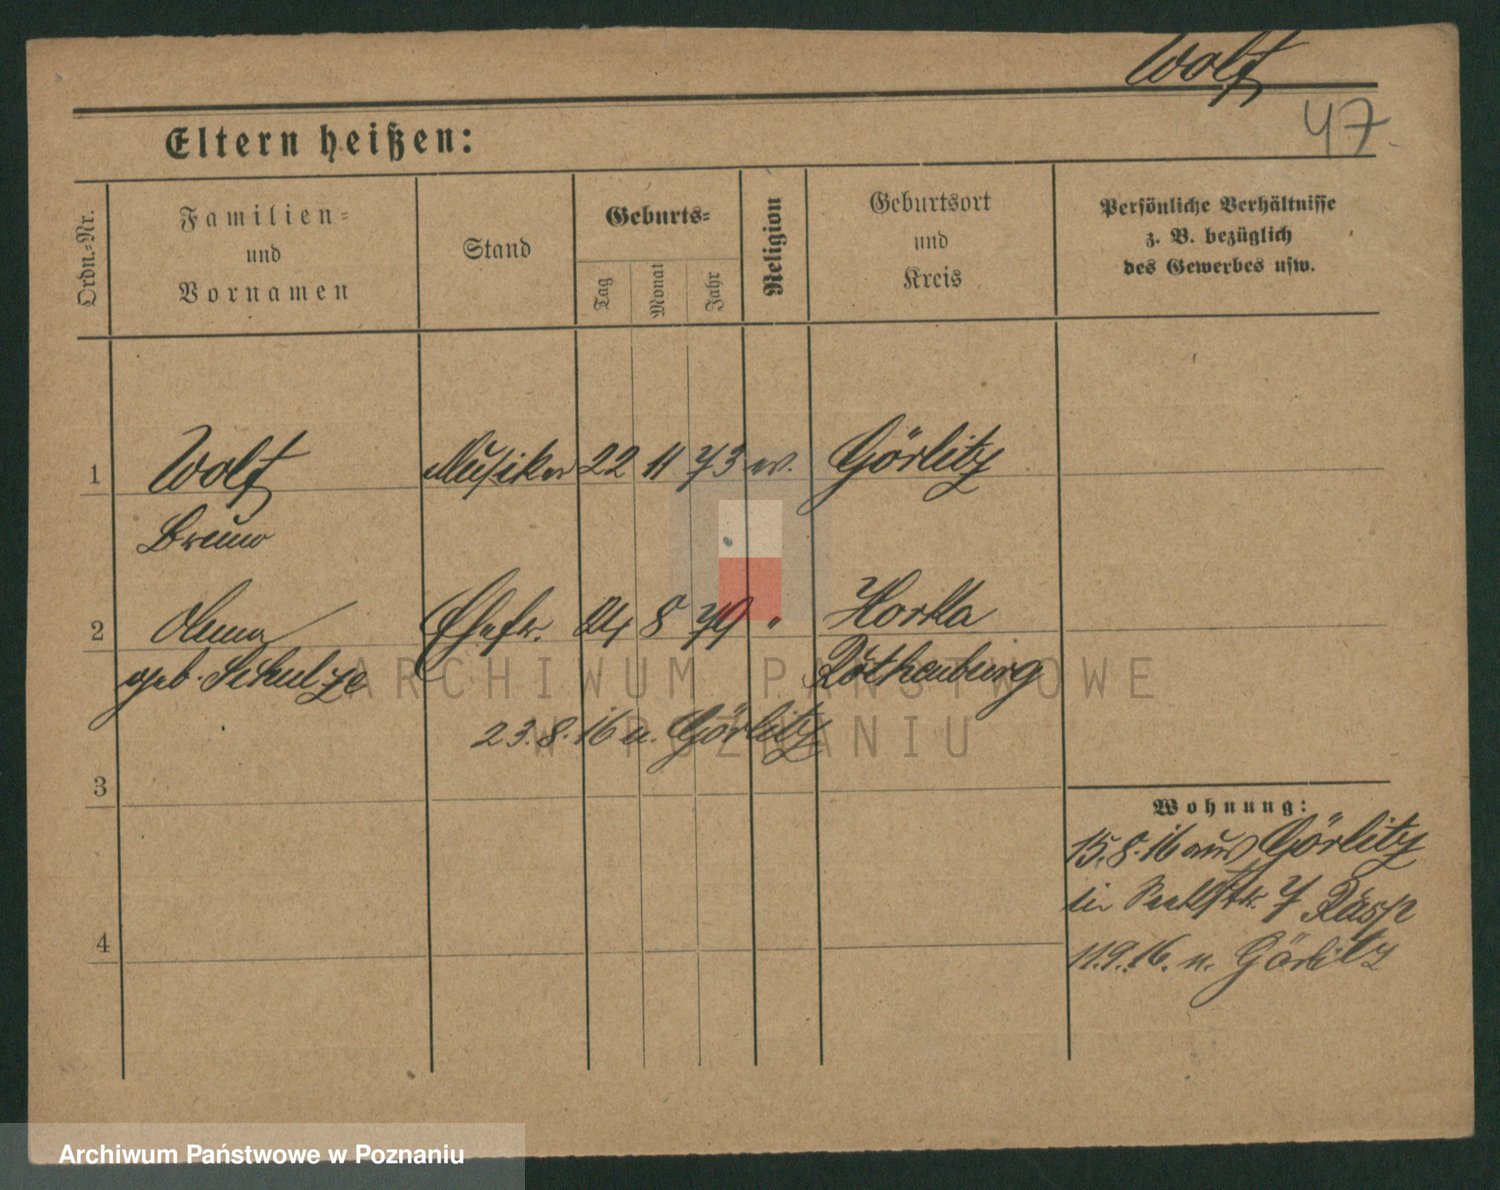 Wolf
47.
Eltern heißen:
Ordn.-Nr.
Familien-
und
Vornamen
Stand
Geburts-
Tag
Monat
Jahr
Religion
Geburtsort
und
Kreis
Persönliche Verhältnisse
z. B. bezüglich
des Gewerbes usw.
1 Wolf Musiker 22 11 73 ev. Görlitz
Bruno
2 Ehefr. 24 8 79 " Horka
geb. Schulze Rothenburg
23.8.16 n. Görlitz
3
Wohnung:
15.8.16 aus Görlitz
7
4
11.9.16. n. Görlitz
ARCHIWUM PAŃSTWOWE
W POZNANIU
Archiwum Państwowe w Poznaniu